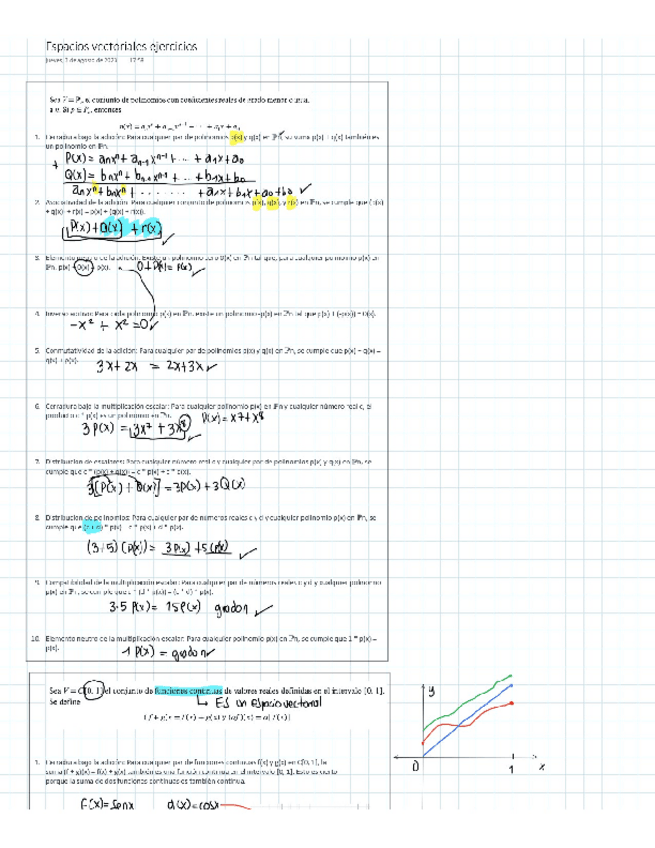 Espacios vectoriales ejercicios
jueves, 3 de agosto de 2023
Sea V = Pₙ el conjunto de polinomios con coeficientes reales de grado menor o igual
a n. Si p ∈ Pₙ, entonces
1. Cerradura bajo la adición: Para cualquier par de polinomios p(x) y q(x) en ℙn, su suma p(x) + q(x) también es
un polinomio en ℙn.
P(x) = aₙxⁿ + aₙ₋₁xⁿ⁻¹ + ... + a₁x + a₀
+
Q(x) = bₙxⁿ + bₙ₋₁xⁿ⁻¹ + ... + b₁x + b₀
aₙxⁿ + bₙxⁿ + ........ + a₁x + b₁x + a₀ + b₀ ✓
2. Asociatividad de la adición: Para cualquier conjunto de polinomios p(x), q(x), y r(x) en ℙn, se cumple que (p(x)
+ q(x)) + r(x) = p(x) + (q(x) + r(x)).
P(x) + Q(x) + r(x) ✓
3. Elemento neutro de la adición: Existe un polinomio cero 0(x) en ℙn tal que, para cualquier polinomio p(x) en
ℙn, p(x) + 0(x) = p(x). 0 + P(x) = P(x) ✓
4. Inverso aditivo: Para cada polinomio p(x) en ℙn, existe un polinomio -p(x) en ℙn tal que p(x) + (-p(x)) = 0(x).
-x² + x² = 0 ✓
5. Conmutatividad de la adición: Para cualquier par de polinomios p(x) y q(x) en ℙn, se cumple que p(x) + q(x) =
q(x) + p(x).
3x + 2x = 2x + 3x ✓
6. Cerradura bajo la multiplicación escalar: Para cualquier polinomio p(x) en ℙn y cualquier número real c, el
producto c * p(x) es un polinomio en ℙn. P(x) = x⁷ + x⁸
3P(x) = 3x⁷ + 3x⁸ ✓
7. Distribución de escalares: Para cualquier número real c y cualquier par de polinomios p(x) y q(x) en ℙn, se
cumple que c * (p(x) + q(x)) = c * p(x) + c * q(x).
3[P(x) + Q(x)] = 3P(x) + 3Q(x)
8. Distribución de polinomios: Para cualquier par de números reales c y d y cualquier polinomio p(x) en ℙn, se
cumple que (c + d) * p(x) = c * p(x) + d * p(x).
(3+5)(P(x)) = 3P(x) + 5(P(x) ✓
9. Compatibilidad de la multiplicación escalar: Para cualquier par de números reales c y d y cualquier polinomio
p(x) en ℙn, se cumple que c * (d * p(x)) = (c * d) * p(x).
3·5 P(x) = 15P(x) ✓
10. Elemento neutro de la multiplicación escalar: Para cualquier polinomio p(x) en ℙn, se cumple que 1 * p(x) =
p(x).
1 P(x) = ✓
Sea V = C[0, 1] el conjunto de funciones continuas de valores reales definidas en el intervalo [0, 1].
Se define
↳ Es un Espacio vectorial
1. Cerradura bajo la adición: Para cualquier par de funciones continuas f(x) y g(x) en C[0, 1], la
suma (f + g)(x) = f(x) + g(x) también es una función continua en el intervalo [0, 1]. Esto es cierto
porque la suma de dos funciones continuas es también continua.
f(x) = senx g(x) = cosx
y
0 1 x